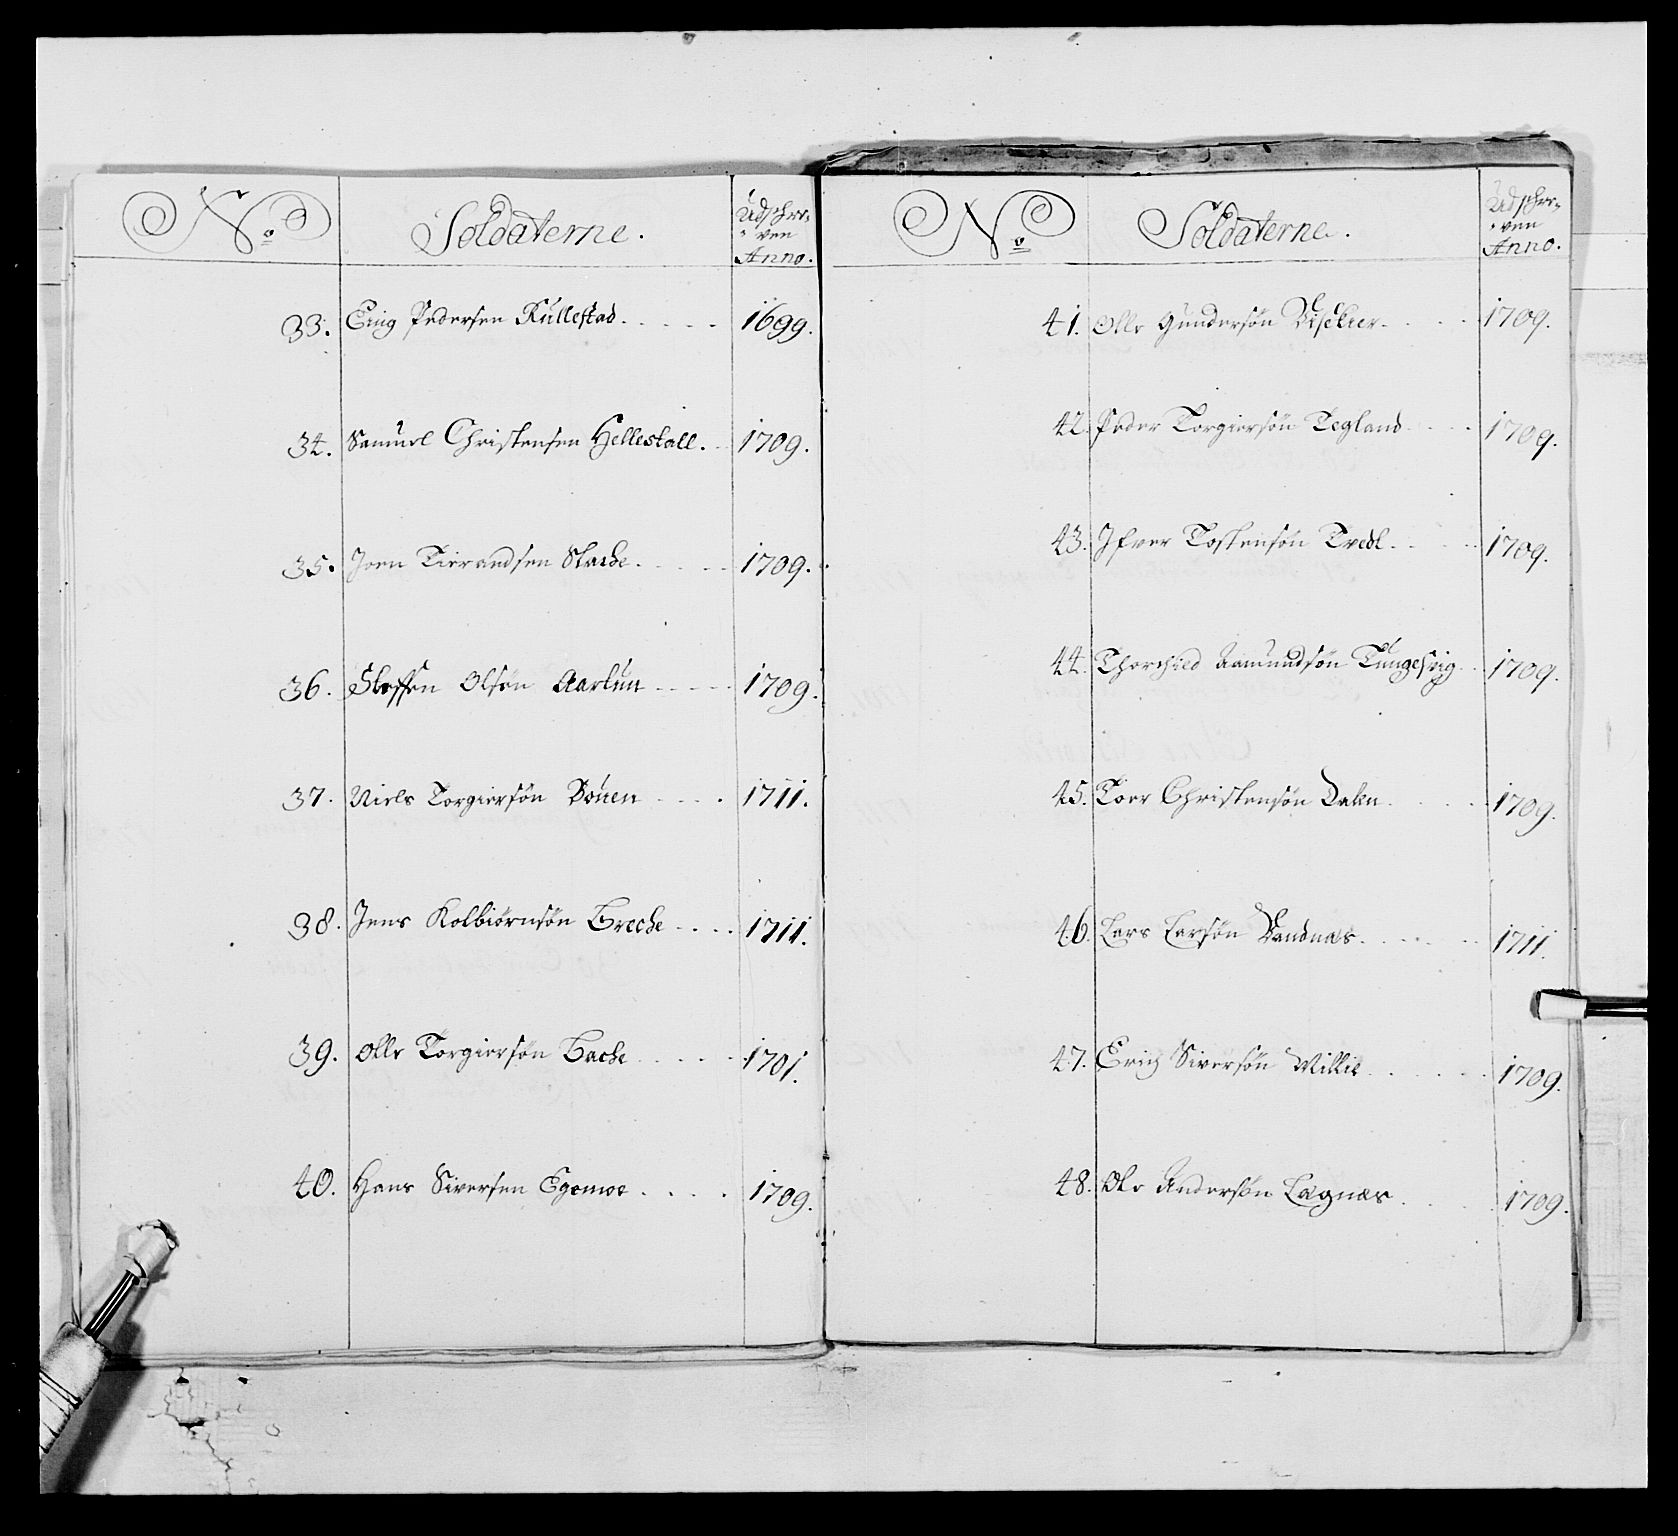 No.
Soldaterne.
Udschre=
=ven
Anno.
33. Erig Pedersen Rullestad. 1699.
34. Samuel Christensen Hellestall. 1709.
35. Joen Tierandsen Stache. 1709.
36. Steffen Olsøn Aarlun 1709.
37. Niels Torgiersøn Døuen 1711.
38. Jens Kolbiørnsøn Breche 1711.
39. Olle Torgiersøn Bache 1701.
40. Hans Siversen Egemoe 1709.
No.
Soldaterne.
Udschre=
=ven
Anno.
41. Olle Gundersøn 1709.
42. Peder Torgiersøn Tegland 1709.
43. Ifver Tostensøn Tvedt 1709.
44. Thorchild Aamundsøn Tungesvig 1709.
45. Toer Christensøn Dalen 1709.
46. Lars Larsøn Vandnæs 1711.
47. Erich Siversøn Millie 1709.
48. Ole Andersøn Lagnæs 1709.